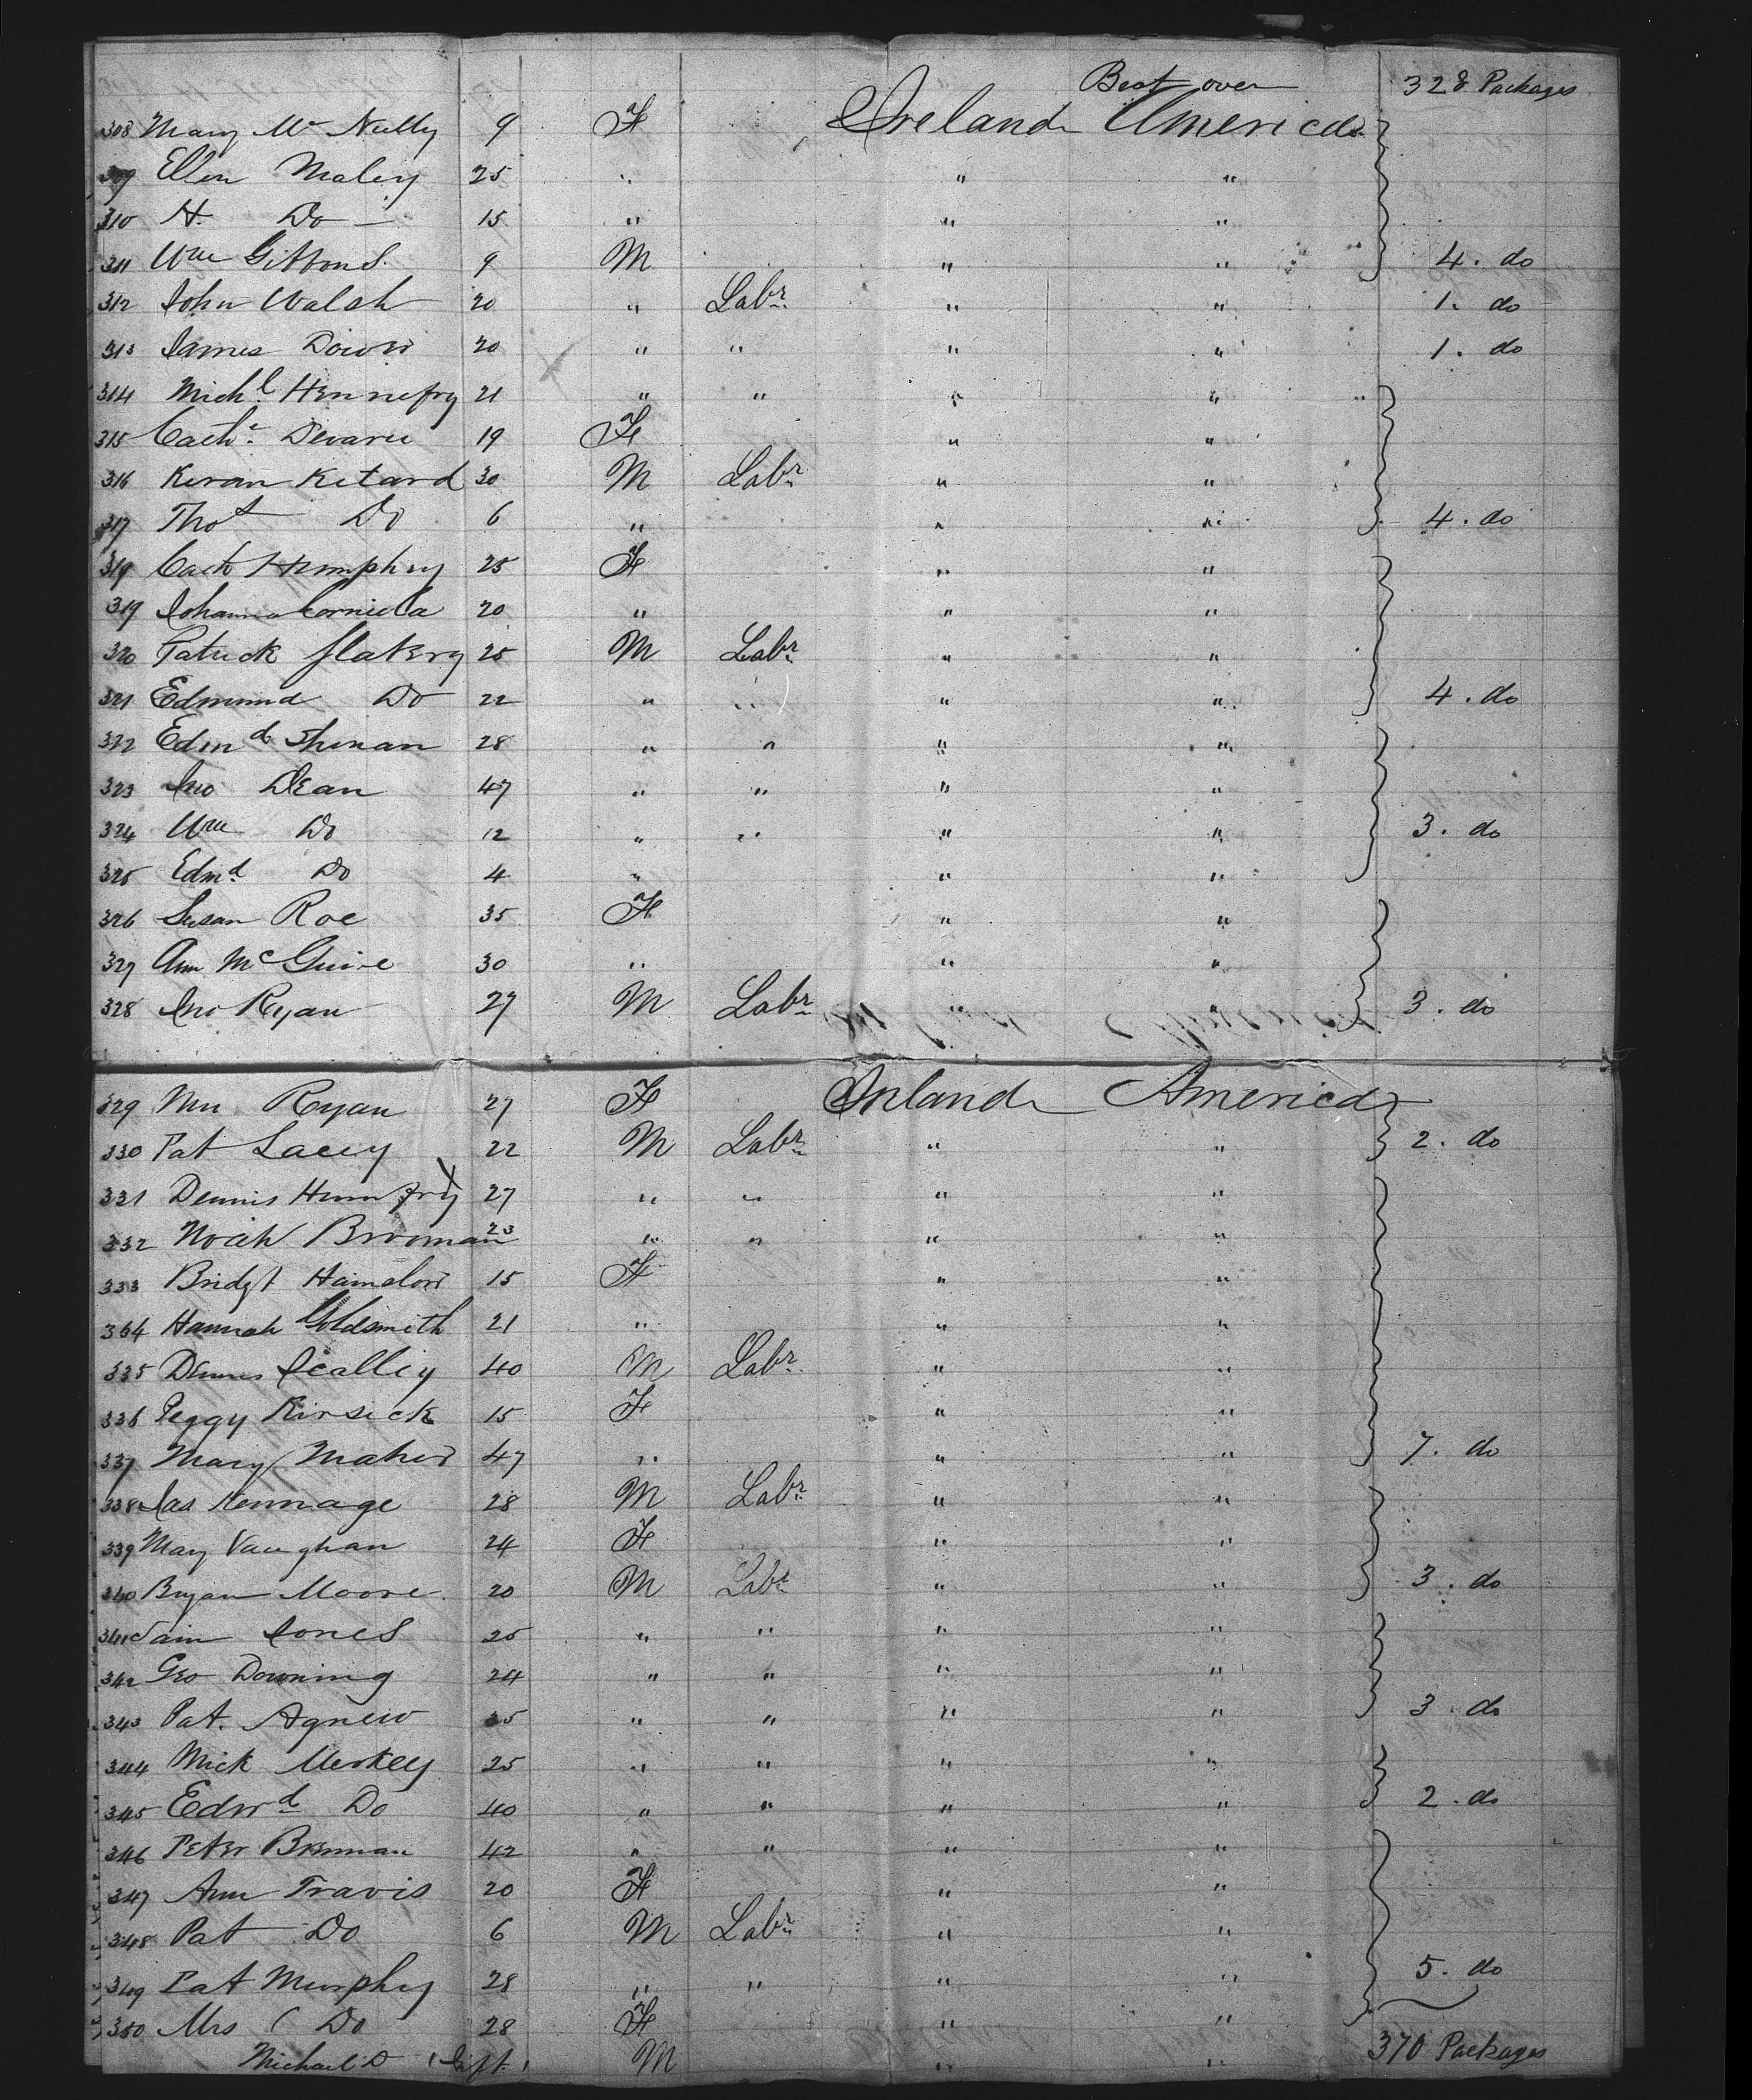 Brot over 328 Packages
308 Mary Mc Nully 9 F Ireland America
309 Ellen Maley 25 " " "
310 H. Do 15 " " "
311 Wm Gibbons 9 M " " 4. do
312 John Walsh 20 " Labr " " 1. do
313 James 20 " " " " 1. do
314 Michl. 21 " " " "
315 Cathe. 19 F " "
316 Keran Ketard 30 M Labr " "
317 Thos Do 6 " " " 4. do
319 Cath Humphry 25 F " "
319 Johanna 20 " " "
320 Patrick flakery 25 M Labr " "
321 Edmund Do 22 " " " " 4. do
322 Edmd Shenan 28 " " " "
323 Jno Dean 47 " " " "
324 Wm Do 12 " " " " 3. do
325 Edmd. Do 4 " " "
326 Susan Roe 35 F " "
327 Ann McGuire 30 " " "
328 Jno Ryan 27 M Labr " " 3. do
329 Mrs Ryan 27 F Ireland America
330 Pat Lacey 22 M Labr " " 2. do
331 Dennis 27 " " " "
332 Noah Broman 23 " " " "
333 Bridgt 15 F " "
364 Hannah Goldsmith 21 " " "
335 Dennis Scalley 40 M Labr " "
336 Peggy Kirsick 15 F " "
337 Mary Maher 47 " " " 7. do
338 Jas Kennage 28 M Labr " "
339 Mary Vaughan 24 F " "
340 Bryan Moore 20 M Labr " " 3. do
341 Sam Jones 25 " " " "
342 Geo Downing 24 " " " "
343 Pat. Agnew 35 " " " " 3 do
344 Mick Merkey 25 " " " "
345 Edwd Do 40 " " " " 2. do
346 Peter Brennan 42 " " " "
347 Ann Travis 20 F " "
348 Pat Do 6 M Labr " "
349 Pat Murphy 28 " " " " 5. do
350 Mrs Do 28 F " "
Michael Do M " " 370 Packages